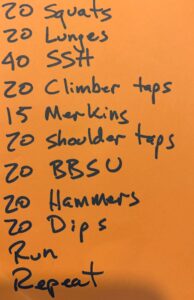 20 Squats
20 Lunges
40 SSH
20 Climber taps
15 Merkins
20 shoulder taps
20 BBSU
20 Hammers
20 Dips
Run
Repeat